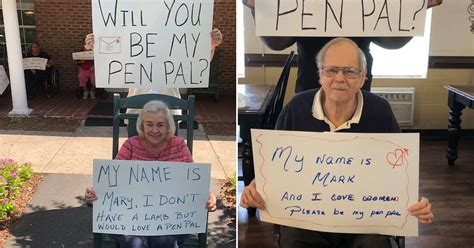 WILL YOU
BE MY
PEN PAL?
MY NAME IS
MARY, I DON'T
HAVE A LAMB BUT
WOULD LOVE A PEN PAL
PEN PAL?
MY NAME IS
MARK
AND I LOVE WOMEN!
PLEASE BE MY PEN PAL